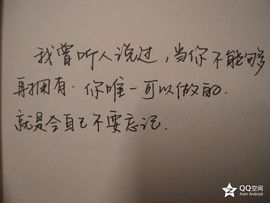 我曾听人说过，当你不能够
再拥有．你唯一可以做的．
就是令自己不要忘记．
QQ空间
from Android